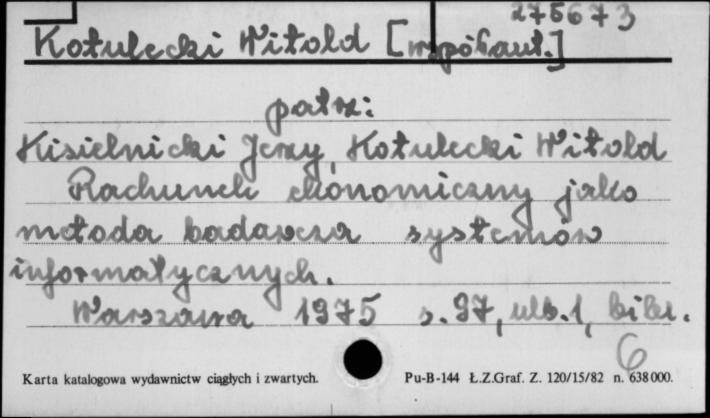 275673
Kotulecki Witold [współaut.]
patrz:
Kisielnicki Jerzy, Kotulecki Witold
Rachunek ekonomiczny jako
metoda badawcza systemów
informatycznych.
Warszawa 1975 s. 97, ulb. 1, bibl.
6
Karta katalogowa wydawnictw ciągłych i zwartych. Pu-B-144 Ł.Z.Graf. Z. 120/15/82 n. 638000.